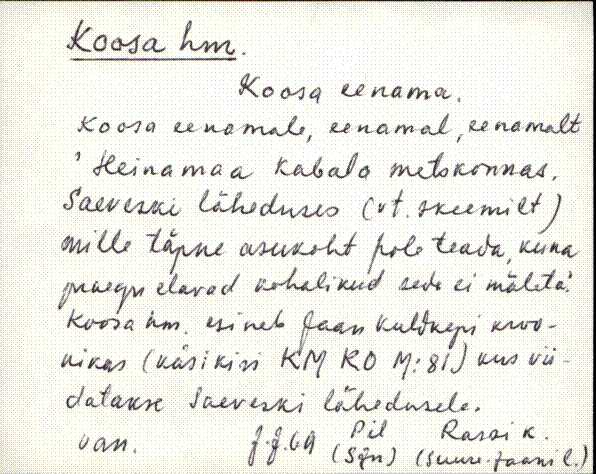 Koosa hm.
Koosa eenama.
Koosa eenamale, eenamal, eenamalt
' Heinamaa Kabala metskonnas,
Saeveski läheduses (vt. skeemilt)
mille täpne asukoht pole teada, kuna
praegu elavad kohalikud seda ei mäleta.
Koosa hm. esineb Jaan Kuldkepi kroo-
nikas (käsikiri KM RO M:81) kus vii-
datakse Saeveski lähedusele.
van. J.J.69 Pil Rassi k.
(Sjn) (Suure-Jaani l.)